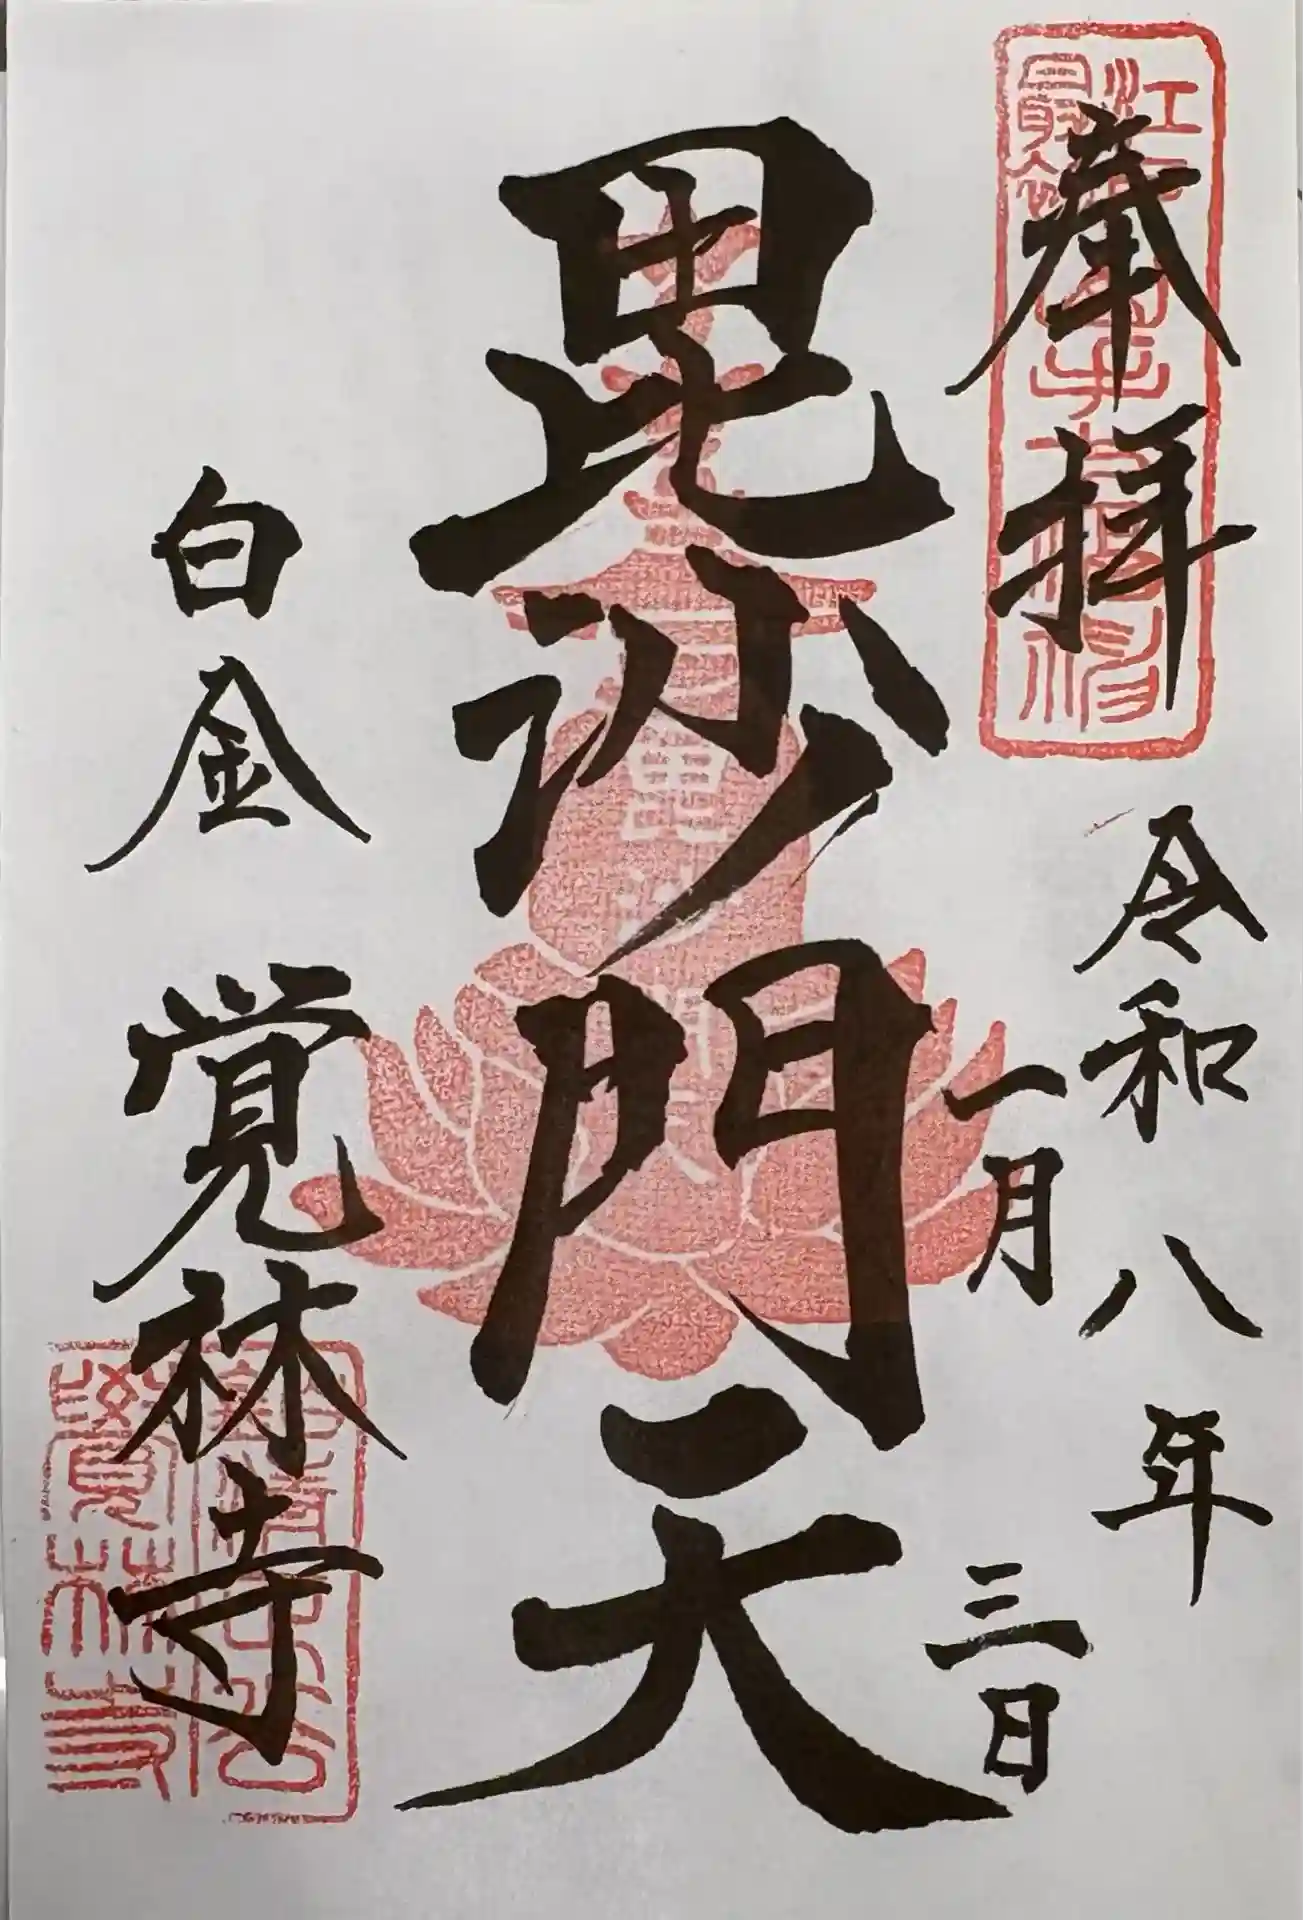 奉拝
令和八年
一月三日
毘沙門天
白金 覚林寺
覺林寺